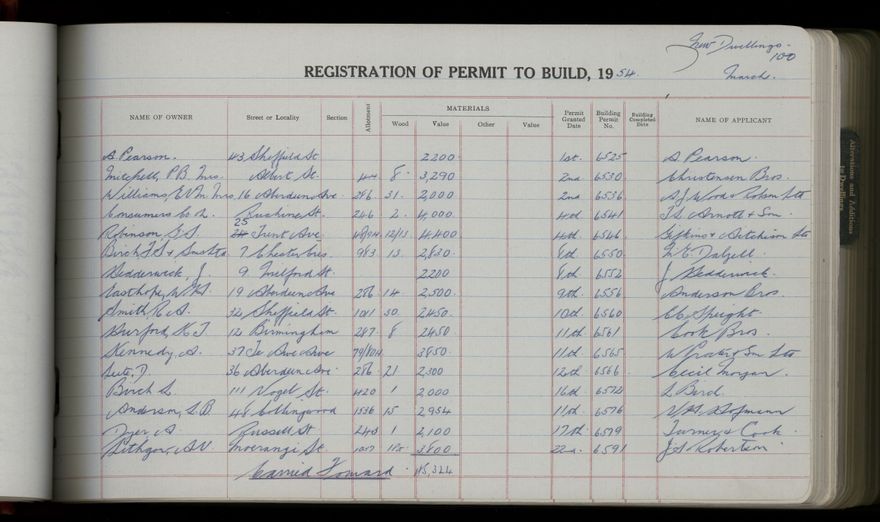 New Dwellings - 100
REGISTRATION OF PERMIT TO BUILD, 1954.
March.
NAME OF OWNER Street or Locality Section Allotment MATERIALS Permit Granted Date Building Permit No. Building Completed Date NAME OF APPLICANT
Wood Value Other Value
A Pearson. 43 Sheffield St 2200 1st. 6525 A Pearson.
Mitchell, P.B. Mrs. Albert St. 8. 3,290 2nd 6530 Christensen Bros.
Williams, Mrs 16 Aberdeen Ave 286 31. 2,000 2nd 6536
Consumers Co Ltd. Ruskine St. 246 2. 4,000 4th 6541 Arnott & Son
Robinson, 25 Trent Ave 12/13 4,400 4th 6546 & Aitchison Ltd
Birch & 7 Chester Cres. 983 13. 2,830. 8th 6550 Dalzell.
Hedderwick, J. 9 St. 2200 8th 6552 J Hedderwick.
Easthope, W 19 Aberdeen Ave 286 14 2,500. 9th 6556 Anderson Bros.
Smith, R.A. 32 Sheffield St. 1041 30 2450. 10th 6560 Speight.
Hurford, K.J. 12 Birmingham 287 8 2450 11th 6561 Cook Bros.
Kennedy, A. 37 Te Awe Awe 3850. 11th 6565 & Son Ltd
D. 36 Aberdeen Ave. 286 21 2,500 12th 6566 Cecil Morgan.
Birch L 111 Vogel St. 420 1 2,000 16th 6572
Anderson, S.B 48 Collingwood 1536 15 2,954 17th 6576 Hofmann
Dyer A. Russell St 243 1 2,100 17th 6579 Turner & Cook.
Lithgow, A.V. Moerangi St. 3,800 22nd. 6591 J.S. Robertson
Carried Forward. 45,324
Alterations and Additions to Dwellings